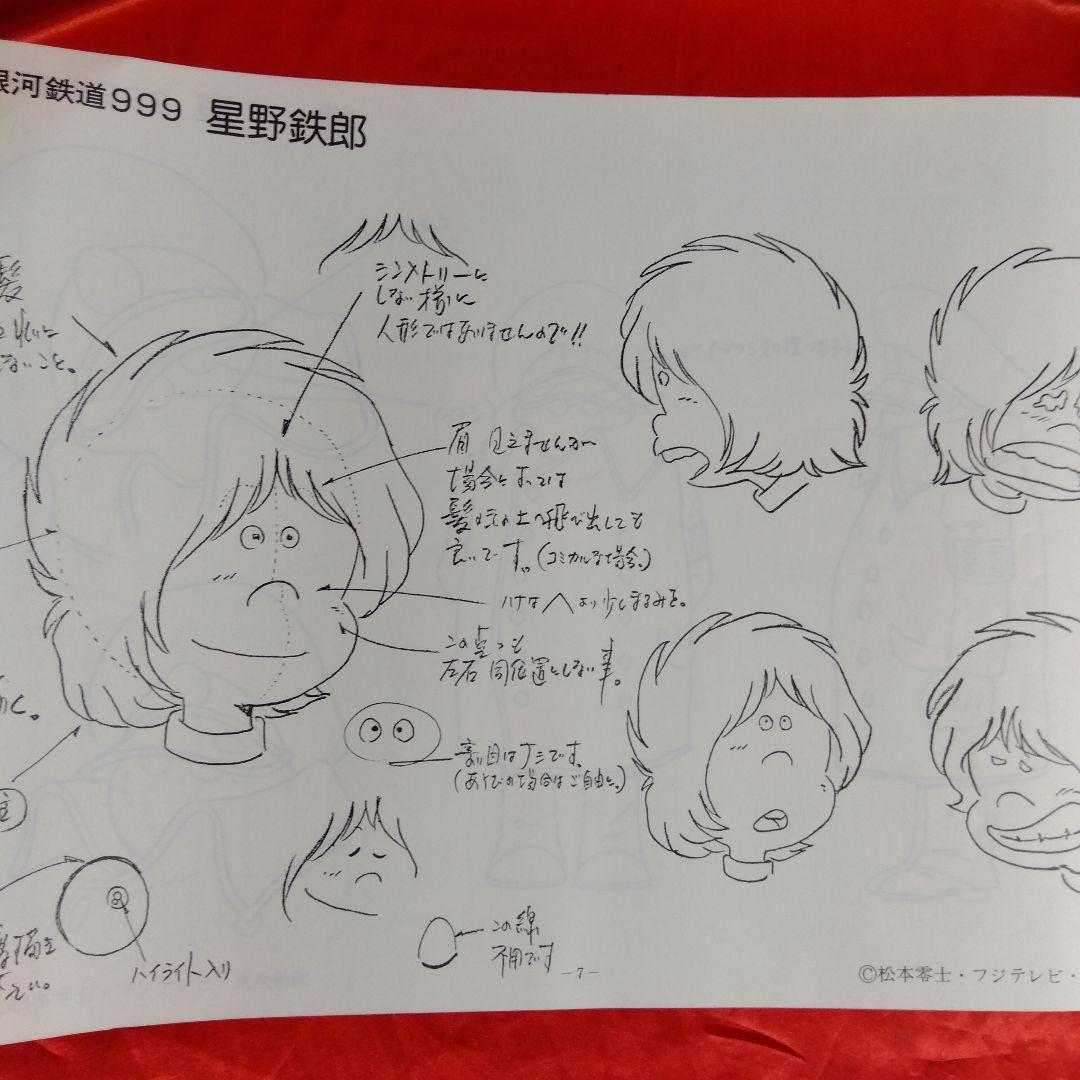 銀河鉄道999 星野鉄郎
髪
ないこと。
シンメトリーに
しない様に
人形ではありませんので!!
眉 見えませんが
場合によっては
髪の毛の上へ飛び出しても
良いです。(コミカルな場合。)
ハナはヘより少しまるみを。
この点も
左右同位置にしない事。
寄り目はナシです。
(あそびの場合はご自由に。)
主
ハイライト入り
この線
不用です
-7-
©松本零士・フジテレビ・